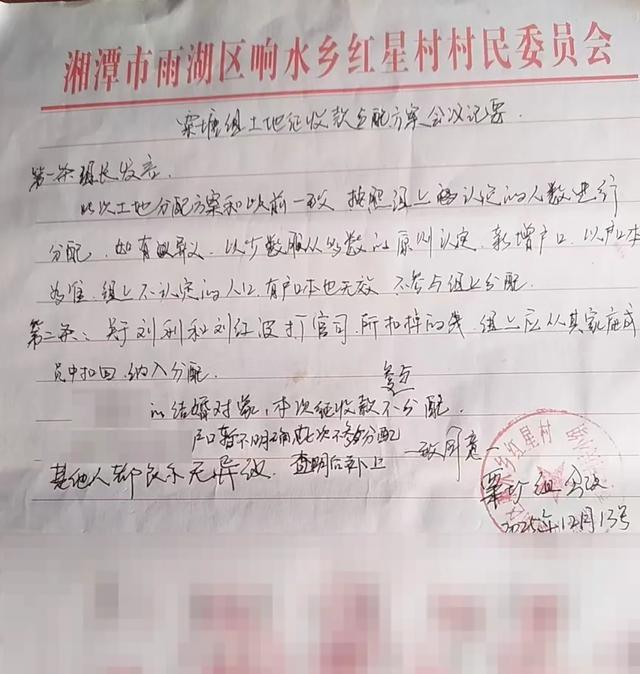 湘潭市雨湖区响水乡红星村村民委员会
栗塘组土地征收款分配方案会议记要.
第一条组长发言.
此次土地分配方案和以前一致 按照组上确认定的人数进行
分配, 如有异义, 以少数服从多数的原则认定, 新增户口, 以户口本
为准, 组上不认定的人口, 有户口本也无效 不参与组上分配.
第二条: 关于刘利和刘红波打官司, 所扣掉的钱, 组上应从其家庭成
员中扣回, 纳入分配.
的结婚对象, 本次征收款不分配.
户口暂不明确此次不参分配
其他人都表示无异议. 查明后补上 一致同意
红星村
栗塘组会议
2025年12月13号